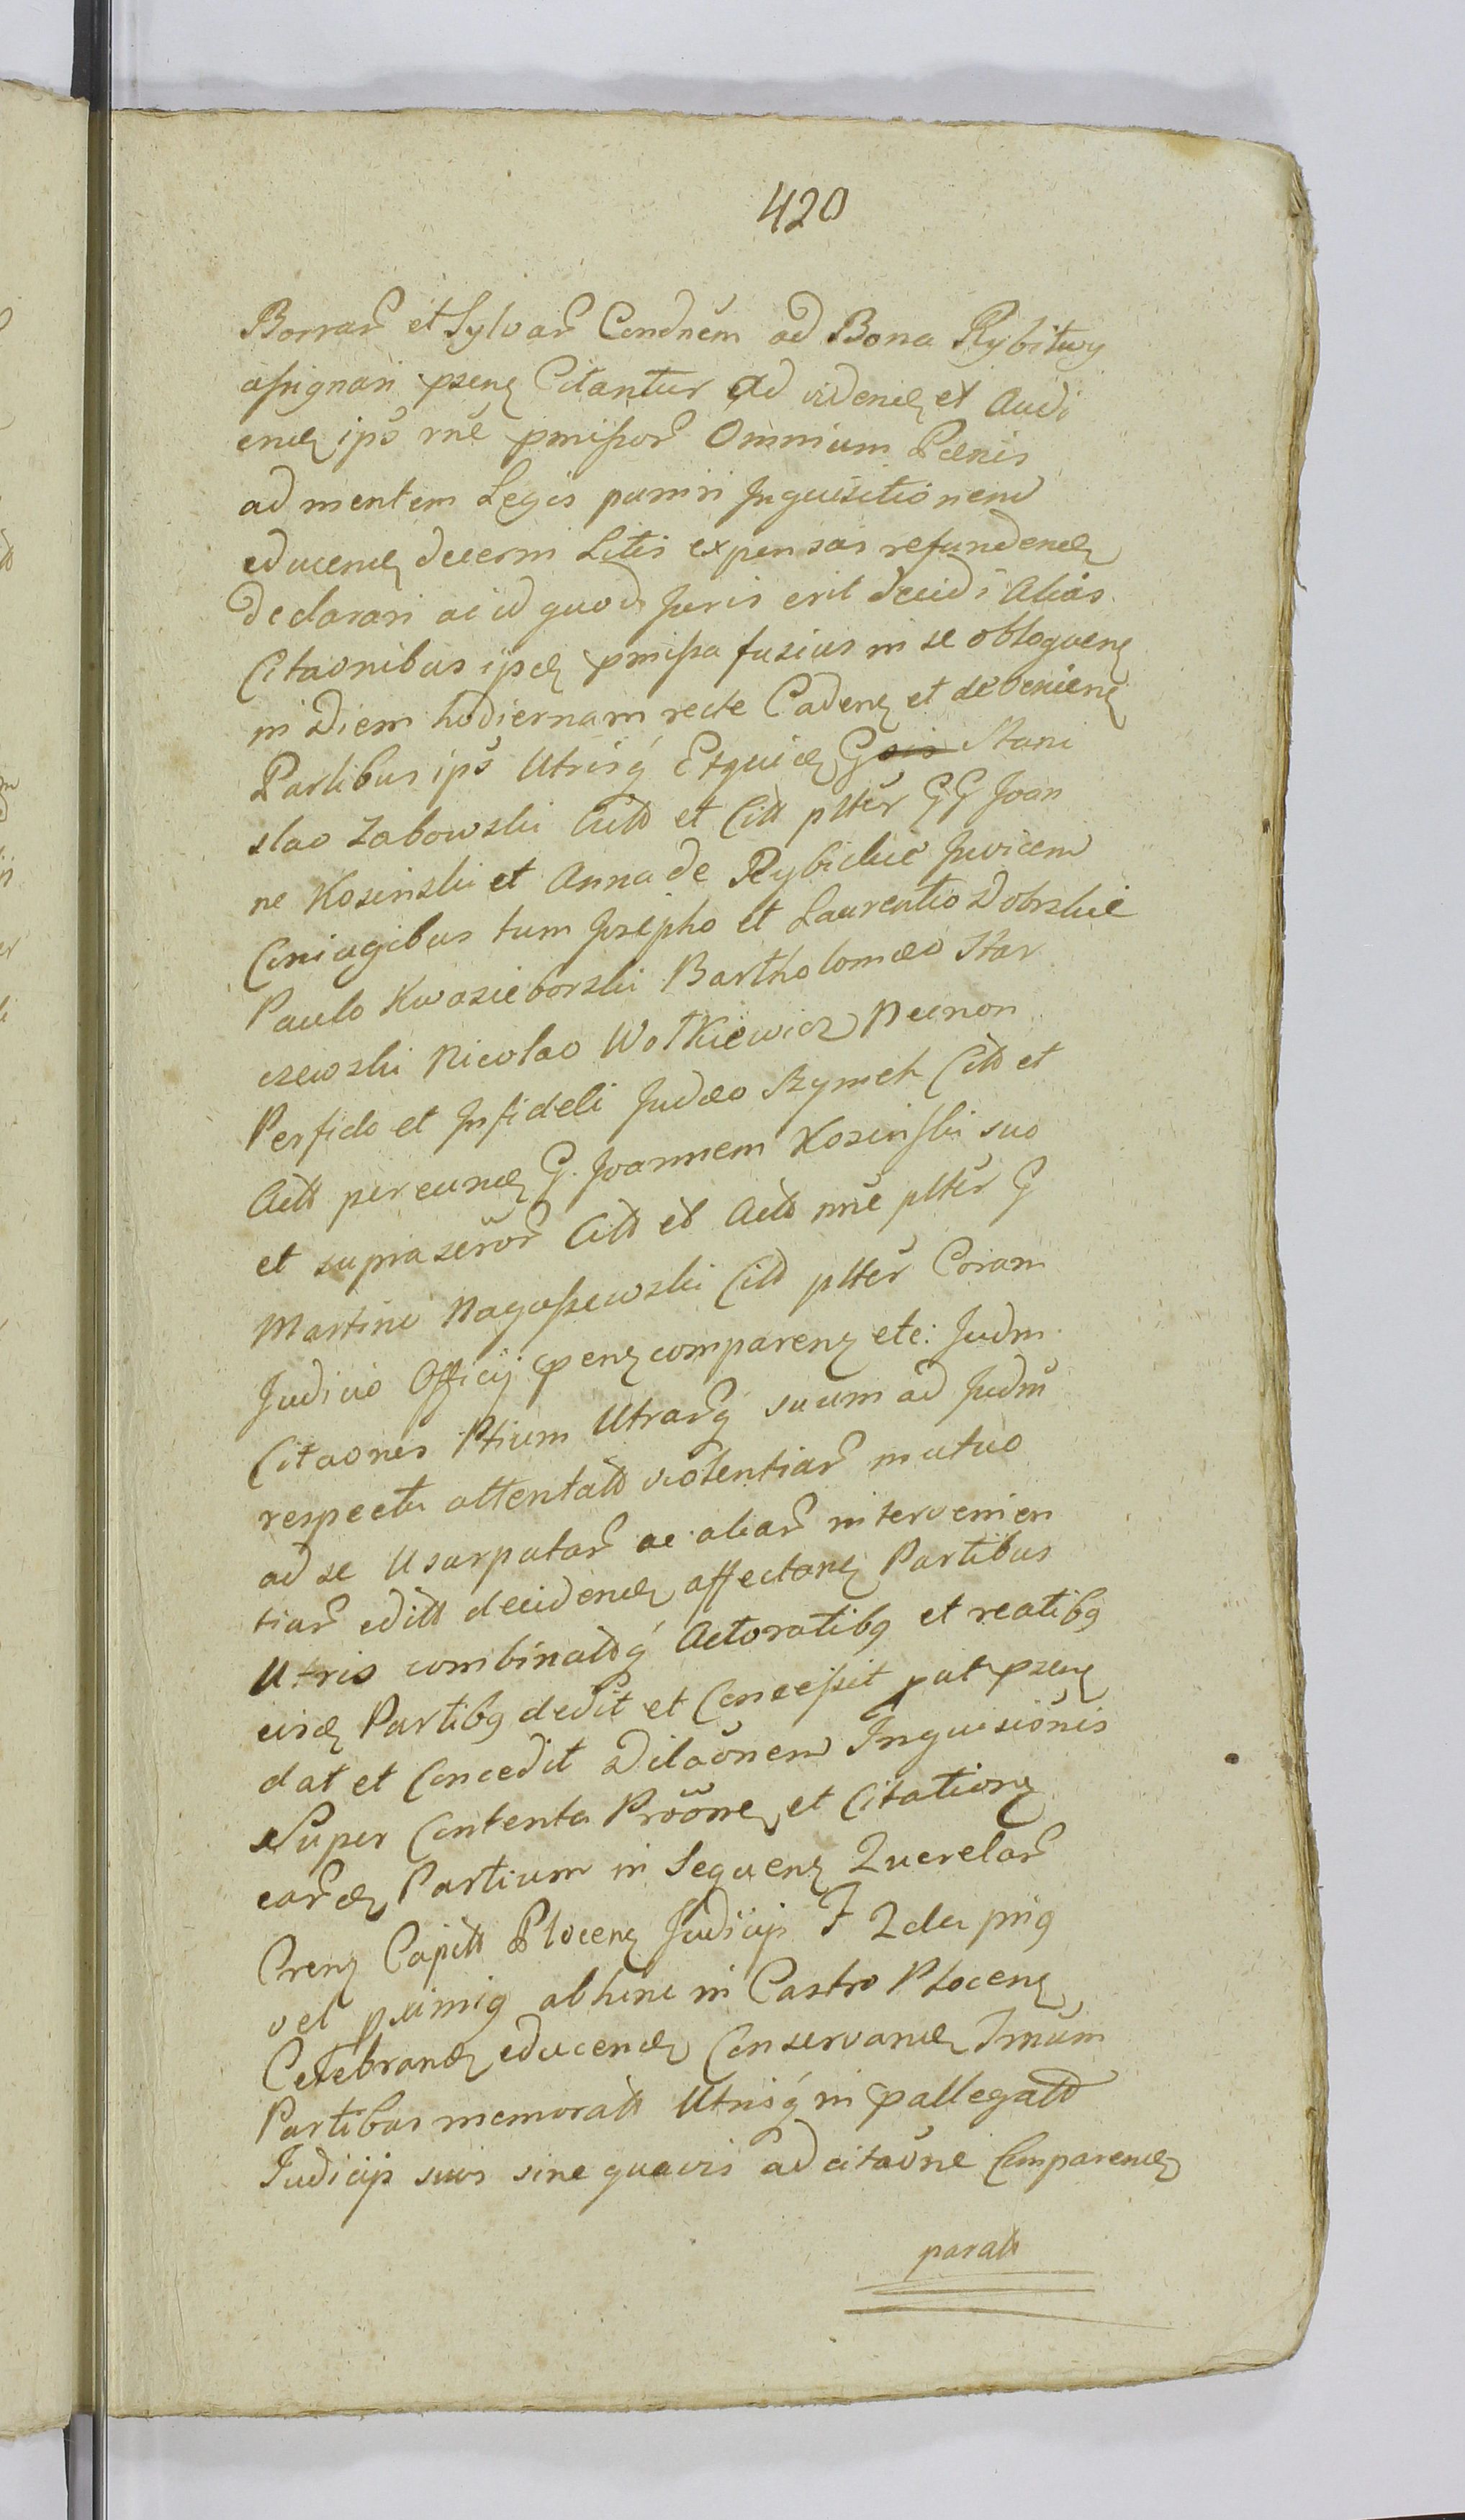 420
Borrar̃ et Sylvar̃ Condnẽm ad Bona Rybitwy
assignari pzenz Citantur Ad videndz et Audi
endz ips̃ rñe pmissor̃ Omnium Pœnis
ad mentem Legis puniri Inquisitionem
educendz decerni Litis expensas refundendz
declarari ac id quod Juris erit decidi Alias
Citaonibus ijsdz pmissa fusius in se obloquenz
in Diem hodiernam recte Cadenz et devenienz
Partibus ips̃ Utrisq́ Exquidz G Stani
slao Zabowski Actt et Citt pltẽr GG Joan
ne Kosinski et Anna de Rybickie Invicem
Coniugibus tum Josepho et Laurentio Dobrskie
Paulo Kwasieborski Bartholomæo Star
czewski Nicolao Wołkiewicz Necnon
Perfido et Infideli Judæo Szymch Citt et
Actt per eundz G. Joannem Kosinski suo
et suprascr̃or̃ Citt et Actt nñe pltẽr G
Martini Nagoszewski Citt pltẽr Coram
Judicio Officij ppenz comparenz etc: Judm
Citaones Ptium Utrarq́ suum ad Judm̃
respectu attentatt violentiar̃ mutuo
ad se Usurpatar̃ ac aliar̃ intervenien
tiar̃ editt decidendz affectanz Partibus
Utris combinattq́ Actoratibq et reatibq
eisdz Partibq dedit et Concessit put pzenz
dat et Concedit Dilaõnem Inquisiõnis
Super Contenta Prõõne, et Citationz
eardz Partium in Sequenz Querelar̃
Crenz Capitt Plocenz Judicijs F 2da pńq
vel pximiq abhinc in Castro Plocenz
Celebrandz educendz Conservandz Tm̃um
Partibus memoratt Utrisq́ in pallegatt
Judicijs suis sine quavis adcitaõne Comparendz
paratt